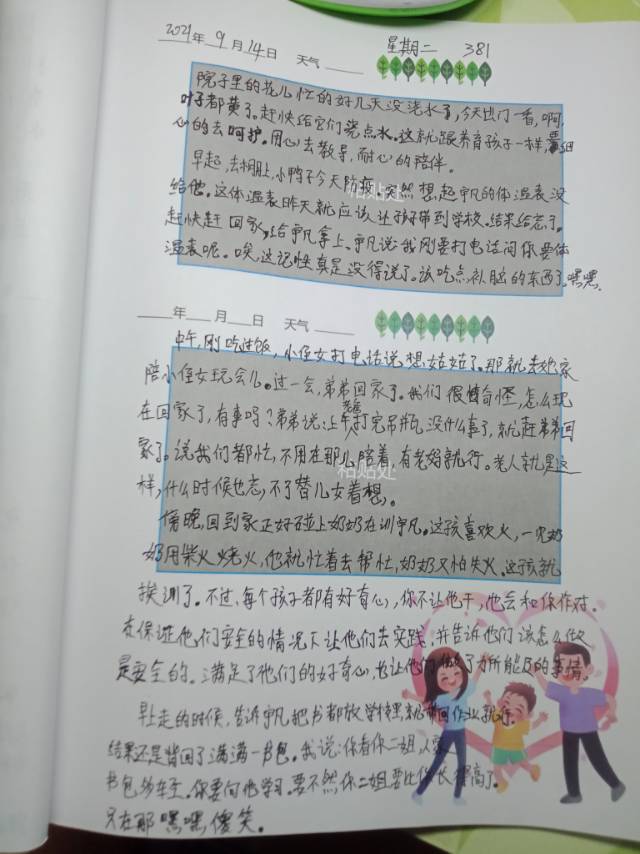 2021年9月14日 天气 星期二 381
院子里的花儿忙的好几天没浇水了,今天出门一看,啊,
叶子都黄了。赶快给它们浇点水。这就跟养育孩子一样,需细
心的去呵护。用心去教导,耐心的陪伴。
早起,去棚上,小鸭子今天防疫。突然想起宇凡的体温表没
给他。这体温表昨天就应该让孩子带到学校。结果给忘了。
赶快赶回家,给宇凡拿上。宇凡说我刚要打电话问你要体
温表呢。唉,这记性真是没得说了。该吃点补脑的东西了。嘿嘿。
粘贴处
年 月 日 天气
中午,刚吃过饭,小侄女打电话说想姑姑了。那就去她家
陪小侄女玩会儿。过一会,弟弟回家了。我们很奇怪,怎么现
在回家了,有事吗?弟弟说:上午打完吊瓶,没什么事了,就赶弟弟回
老人
家了。说我们都忙,不用在那儿陪着,有老妈就行。老人就是这
样,什么时候也忘不了替儿女着想。
粘贴处
傍晚,回到家正好碰上奶奶在训宇凡。这孩喜欢火,一见奶
奶用柴火烧火,他就忙着去帮忙,奶奶又怕失火。这孩就
挨训了。不过,每个孩子都有好奇心,你不让他干,他会和你作对。
在保证他们安全的情况下让他们去实践,并告诉他们该怎么做
是安全的。满足了他们的好奇心,也让他们做了力所能及的事情。
早上走的时候,告诉宇凡把书都放学校里,就带回作业就行。
结果还是背回了满满一书包。我说:你看你二姐,人家
书包多轻。你要向他学习。要不然,你二姐要比你长得高了。
只在那嘿嘿,傻笑。